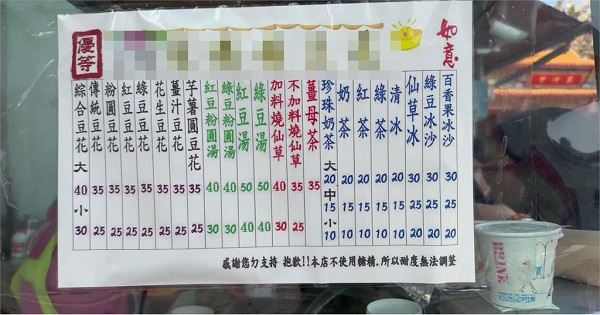 優等
如意
百香果冰沙 30 25
綠豆冰沙 30 25
仙草冰 30 20
清冰 20 15 10
綠茶 20 15 10
紅茶 20 15 10
奶茶 20 15 10
珍珠奶茶 大 20 中 15 小 10
薑母茶 35
不加料燒仙草 35 25
加料燒仙草 40 30
綠豆湯 50 40
紅豆湯 50 40
綠豆粉圓湯 40 30
紅豆粉圓湯 40 30
芋薯圓豆花 35 25
薑汁豆花 35 25
花生豆花 35 25
綠豆豆花 35 25
紅豆豆花 35 25
粉圓豆花 35 25
傳統豆花 35 25
綜合豆花 大 40 小 30
感謝您勾支持 抱歉!!本店不使用糖精.所以甜度無法調整